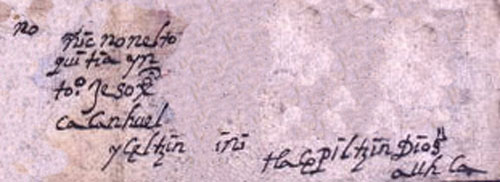 no nic nonelto
quitia yn
to.º Jesoxº
ca çanhuel
yçeltzin ini tlaçopiltzin Dios
auh ca